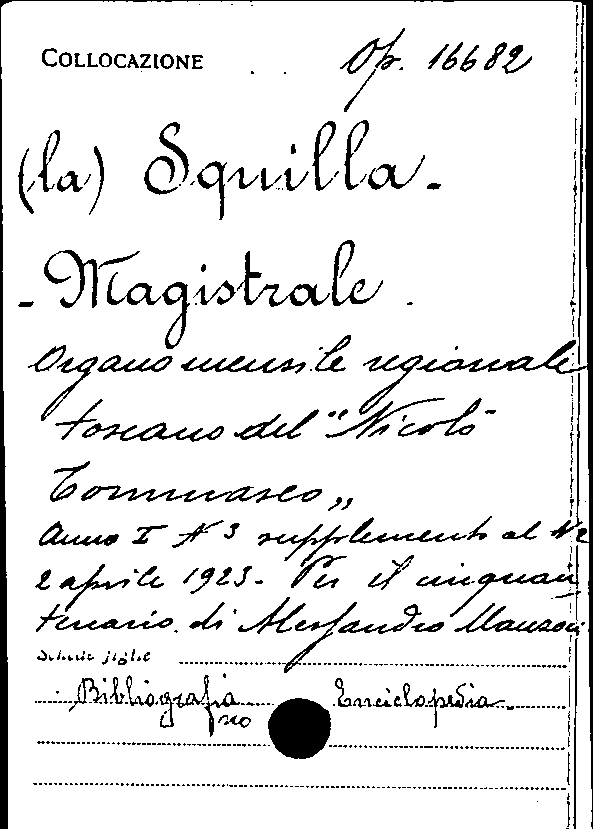 COLLOCAZIONE Op. 16682
(la) Squilla-
-Magistrale.
Organo mensile regionale
toscano del "Nicolò
Tommaseo„
Anno I N 3 supplemento al N 2
2 aprile 1923 - Per il cinquan
tenario di Alessandro Manzoni
Bibliografia Enciclopedia
no